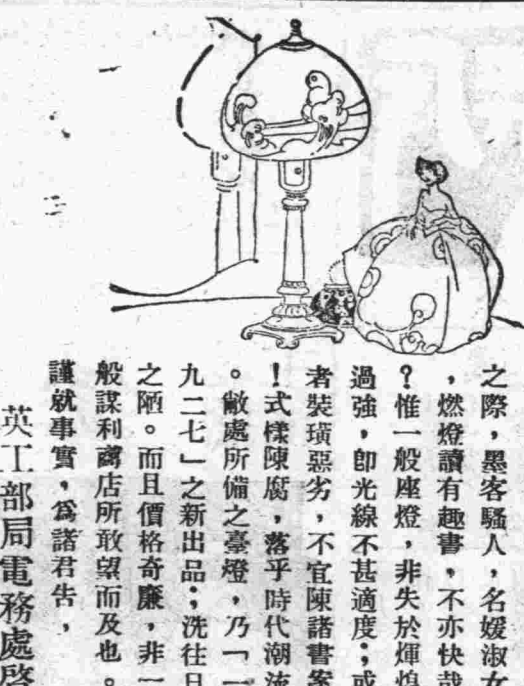 之際，墨客騷人，名媛淑女
，燃燈讀有趣書，不亦快哉
？惟一般座燈，非失於煇煌
過強，卽光線不甚適度；或
者裝璜惡劣，不宜陳諸書案
！式樣陳腐，落乎時代潮流
。敝處所備之臺燈，乃「一
九二七」之新出品；洗往日
之陋。而且價格奇廉，非一
般謀利商店所敢望而及也。
謹就事實，爲諸君告，
英工部局電務處啓